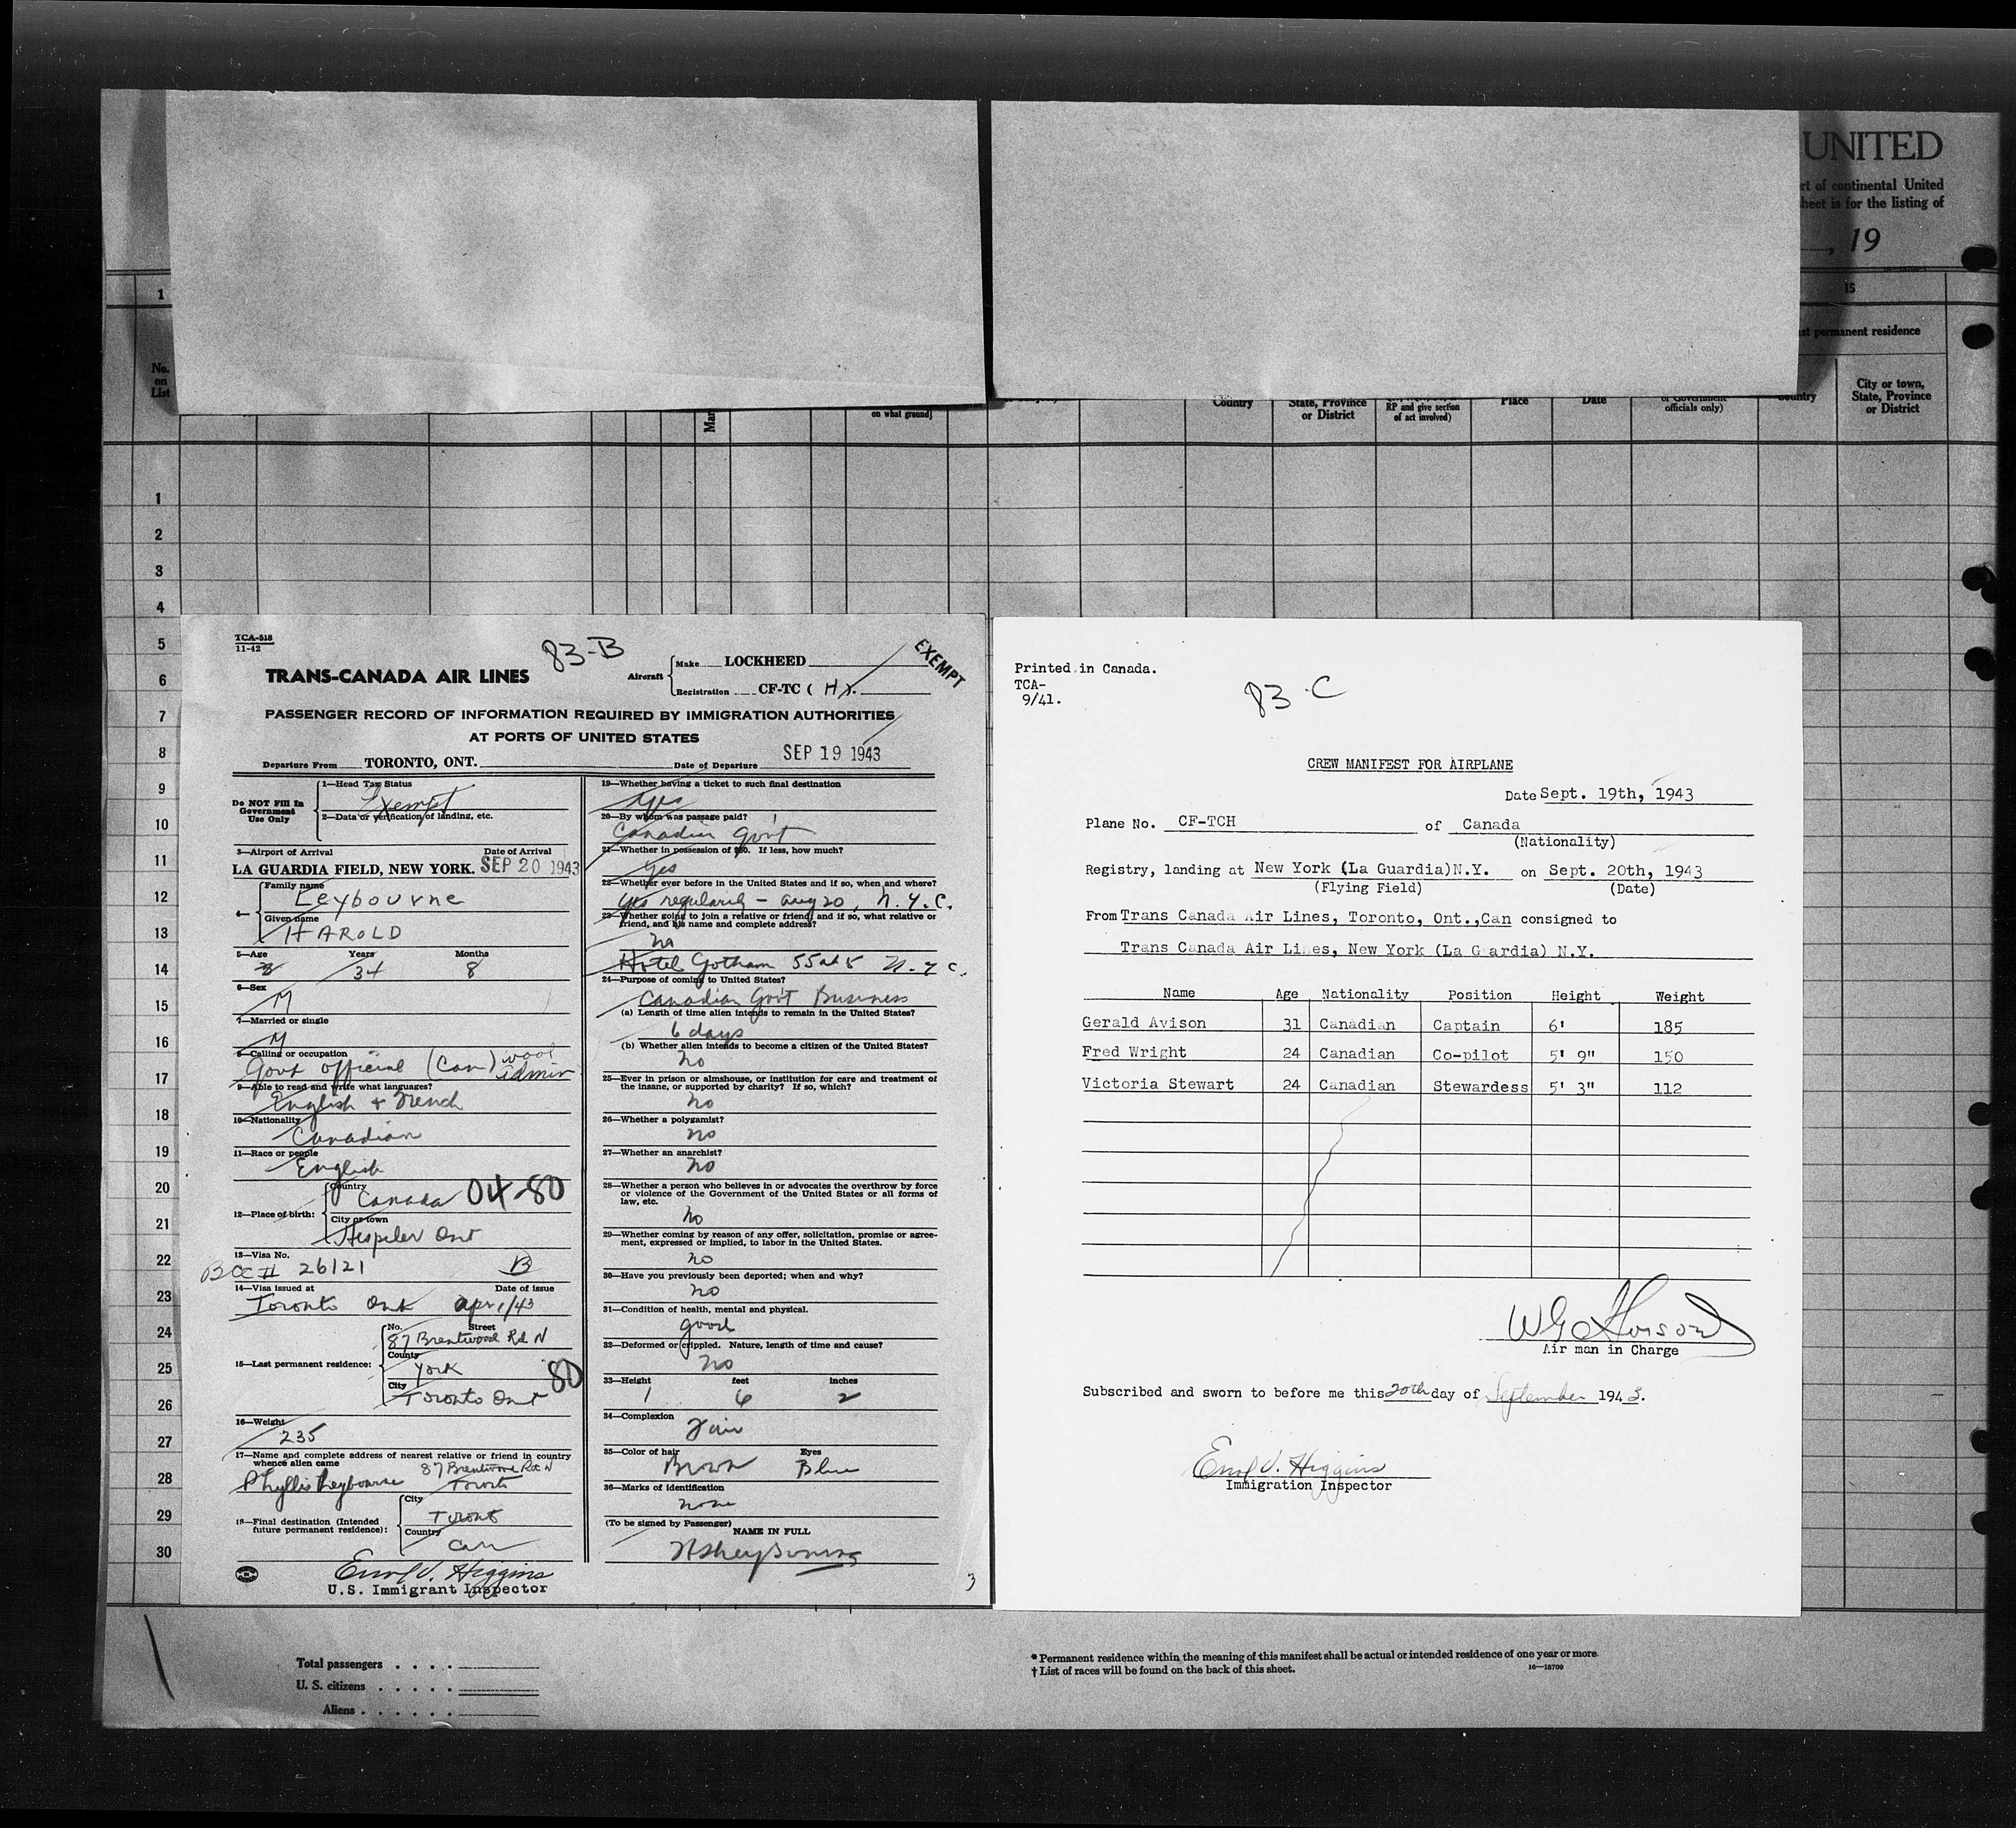 UNITED
rt of continental United
heet is for the listing of
, 19
1
15
st permanent residence
No.
on
List
Mar
on what ground]
Country
State, Province
or District
RP and give section
of act involved)
Place
Date
or Government
officials only)
Country
City or town,
State, Province
or District
1
2
3
4
5
6
7
8
9
10
11
12
13
14
15
16
17
18
19
20
21
22
23
24
25
26
27
28
29
30
TCA-518
11-42
83-B
TRANS-CANADA AIR LINES
Aircraft
Make LOCKHEED
Registration CF-TC ( H ).
EXEMPT
PASSENGER RECORD OF INFORMATION REQUIRED BY IMMIGRATION AUTHORITIES
AT PORTS OF UNITED STATES
Departure From TORONTO, ONT. Date of Departure SEP 19 1943
Do NOT Fill In
Government
Use Only
1—Head Tax Status
Exempt
2—Data or verification of landing, etc.
3—Airport of Arrival Date of Arrival
LA GUARDIA FIELD, NEW YORK. SEP 20 1943
4—
Family name
Leybourne
Given name
HAROLD
5—Age Years Months
34 8
6—Sex
M
7—Married or single
M
8—Calling or occupation
Govt official (Can) wool admin
9—Able to read and write what languages?
English + French
10—Nationality
Canadian
11—Race or people
English
12—Place of birth:
Country
Canada 04-80
City or town
Hespeler Ont
13—Visa No.
BCC# 26121 B
14—Visa issued at Date of issue
Toronto Ont Apr 1/43
15—Last permanent residence:
No. Street
87 Brentwood Rd N
County
York
City
Toronto Ont 80
16—Weight
235
17—Name and complete address of nearest relative or friend in country
whence alien came
Phyllis Leybourne 87 Brentwood Rd N
Toronto
18—Final destination (Intended
future permanent residence):
City
Toronto
Country
Can
Errol J. Higgins
U.S. Immigrant Inspector
19—Whether having a ticket to such final destination
Yes
20—By whom was passage paid?
Canadian Gov't
21—Whether in possession of $50. If less, how much?
Yes
22—Whether ever before in the United States and if so, when and where?
Yes regularly - Aug 20, N.Y.C.
23—Whether going to join a relative or friend, and if so, what relative or
friend, and his name and complete address?
no
Hotel Gotham 55 at 5 N.Y.C.
24—Purpose of coming to United States?
Canadian Gov't Business
(a) Length of time alien intends to remain in the United States?
6 days
(b) Whether alien intends to become a citizen of the United States?
no
25—Ever in prison or almshouse, or institution for care and treatment of
the insane, or supported by charity? If so, which?
no
26—Whether a polygamist?
no
27—Whether an anarchist?
no
28—Whether a person who believes in or advocates the overthrow by force
or violence of the Government of the United States or all forms of
law, etc.
no
29—Whether coming by reason of any offer, solicitation, promise or agree-
ment, expressed or implied, to labor in the United States.
no
30—Have you previously been deported; when and why?
no
31—Condition of health, mental and physical.
good
32—Deformed or crippled. Nature, length of time and cause?
no
33—Height feet inches
6 2
34—Complexion
Fair
35—Color of hair Eyes
Brown Blue
36—Marks of identification
none
(To be signed by Passenger)
NAME IN FULL
3
Printed in Canada.
TCA-
9/41.
83-C
CREW MANIFEST FOR AIRPLANE
Date Sept. 19th, 1943
Plane No. CF-TCH of Canada
(Nationality)
Registry, landing at New York (La Guardia)N.Y. on Sept. 20th, 1943
(Flying Field) (Date)
From Trans Canada Air Lines, Toronto, Ont.,Can consigned to
Trans Canada Air Lines, New York (La Guardia) N.Y.
Name Age Nationality Position Height Weight
Gerald Avison 31 Canadian Captain 6' 185
Fred Wright 24 Canadian Co-pilot 5' 9" 150
Victoria Stewart 24 Canadian Stewardess 5' 3" 112
Air man in Charge
Subscribed and sworn to before me this 20th day of September 1943.
Errol J. Higgins
Immigration Inspector
Total passengers . . . .
U. S. citizens . . . . .
Aliens . . . . . .
* Permanent residence within the meaning of this manifest shall be actual or intended residence of one year or more.
† List of races will be found on the back of this sheet.
16—18709